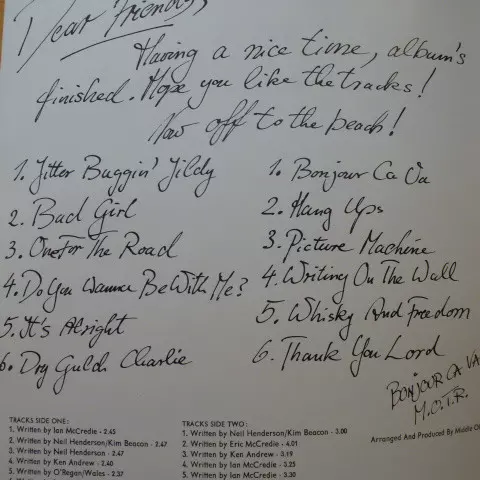 Dear Friends,
Having a nice time, album's
finished. Hope you like the tracks!
Now off to the beach!
1. Jitter Buggin' Jildy
2. Bad Girl
3. One For The Road
4. Do You Wanna Be With Me?
5. It's Alright
6. Dry Gulch Charlie
1. Bonjour Ca Va
2. Hang Ups
3. Picture Machine
4. Writing On The Wall
5. Whisky And Freedom
6. Thank You Lord
BONJOUR CA VA
M.O.T.R.
TRACKS SIDE ONE:
1. Written by Ian McCredie - 2.45
2. Written by Neil Henderson/Kim Beacon - 2.47
3. Written by Neil Henderson - 2.47
4. Written by Ken Andrew - 2.40
5. Written by O'Regan/Wales - 2.37
TRACKS SIDE TWO:
1. Written by Neil Henderson/Kim Beacon - 3.00
2. Written by Eric McCredie - 4.01
3. Written by Ken Andrew - 3.19
4. Written by Ian McCredie - 3.25
5. Written by Ian McCredie - 3.30
Arranged And Produced By Middle Of